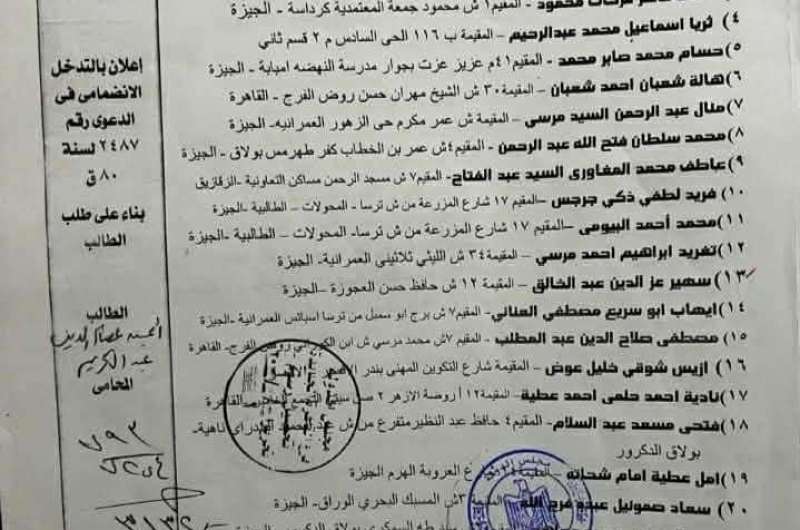 محمود - المقيم١ ش محمود جمعة المعتمدية كرداسة - الجيزة
٤ ثريا اسماعيل محمد عبدالرحيم - المقيمة ب ١١٦ الحى السادس م ٢ قسم ثاني
٥ حسام محمد صابر محمد - المقيم٤١م عزيز عزت بجوار مدرسة النهضه امبابة - الجيزة
٦ هالة شعبان احمد شعبان - المقيمة٣٠ ش الشيخ مهران حسن روض الفرج - القاهرة
٧ منال عبد الرحمن السيد مرسي - المقيمة ش عمر مكرم حى الزهور العمرانيه- الجيزة
٨ محمد سلطان فتح الله عبد الرحمن - المقيم٤ش عمر بن الخطاب كفر طهرمس بولاق - الجيزة
٩ عاطف محمد المغاورى السيد عبد الفتاح- المقيم٧ ش مسجد الرحمن مساكن التعاونية -الزقازيق
١٠ فريد لطفي ذكي جرجس –المقيم ١٧ شارع المزرعة من ش ترسا - المحولات – الطالبية -الجيزة
١١ محمد أحمد البيومى –المقيم ١٧ شارع المزرعة من ش ترسا- المحولات – الطالبية -الجيزة
١٢ تغريد ابراهيم احمد مرسي – المقيمة٣٤ ش الليثي ثلاثيني العمرانية- الجيزة
١٣ سهير عز الدين عبد الخالق - المقيمة ١٢ ش حافظ حسن العجوزة –الجيزة
١٤ ايهاب ابو سريع مصطفي العناني- المقيم٧ ش برج ابو سمبل من ترسا اسباتس العمرانية -الجيزة
١٥ مصطفى صلاح الدين عبد المطلب - المقيم ٧ش محمد مرسي ش ابن الفرج- القاهرة
١٦ ازيس شوقي خليل عوض - المقيمة شارع التكوين المهنى بندر
١٧ نادية احمد حلمى احمد عطية- المقيمة١٢ أ روضة الازهر ٢ التجمع القاهرة
١٨ فتحى مسعد عبد السلام - المقيم٤ حافظ عبد النظير متفرع من ش ناهية-
بولاق الدكرور
١٩ امل عطية امام شحاته - ع العروبة الهرم الجيزة
٢٠ سعاد صموئيل عبده فرج الله ش المسبك البحري الوراق- الجيزة
بولاق
إعلان بالتدخل
الانضمامى فى
الدعوى رقم
٢٤٨٧ لسنة
٨٠ ق
بناء على طلب
الطالب
الطالب
عصام الدين
عبد الكريم
المحامى
مجلس الدولة